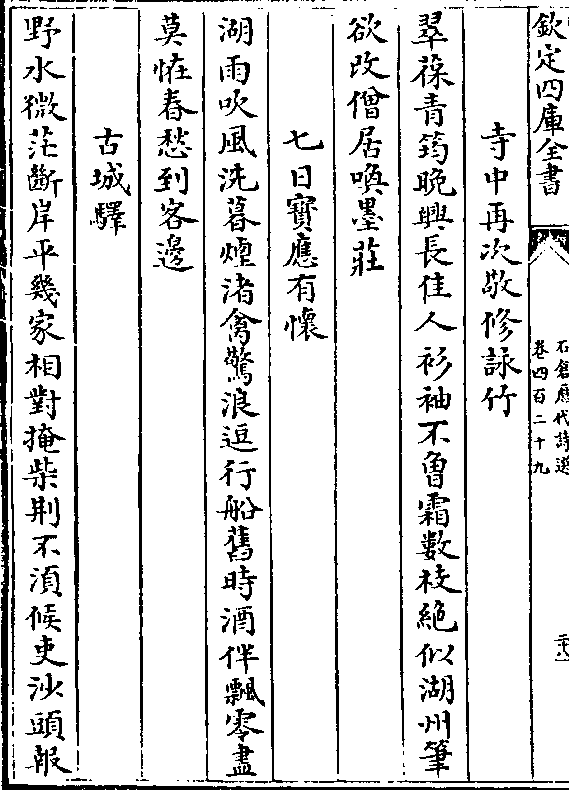 欽定四庫全書
石倉歷代詩選
卷四百二十九
寺中再次敬修詠竹
翠葆青筠晚興長佳人衫袖不曾霜數枝絶似湖州筆
欲改僧居喚墨莊
七日寶應有懷
湖雨吹風洗暮煙渚禽驚浪逗行船舊時酒伴飄零盡
莫恠春愁到客邊
古城驛
野水微茫斷岸平幾家相對掩柴荆不湏候吏沙頭報